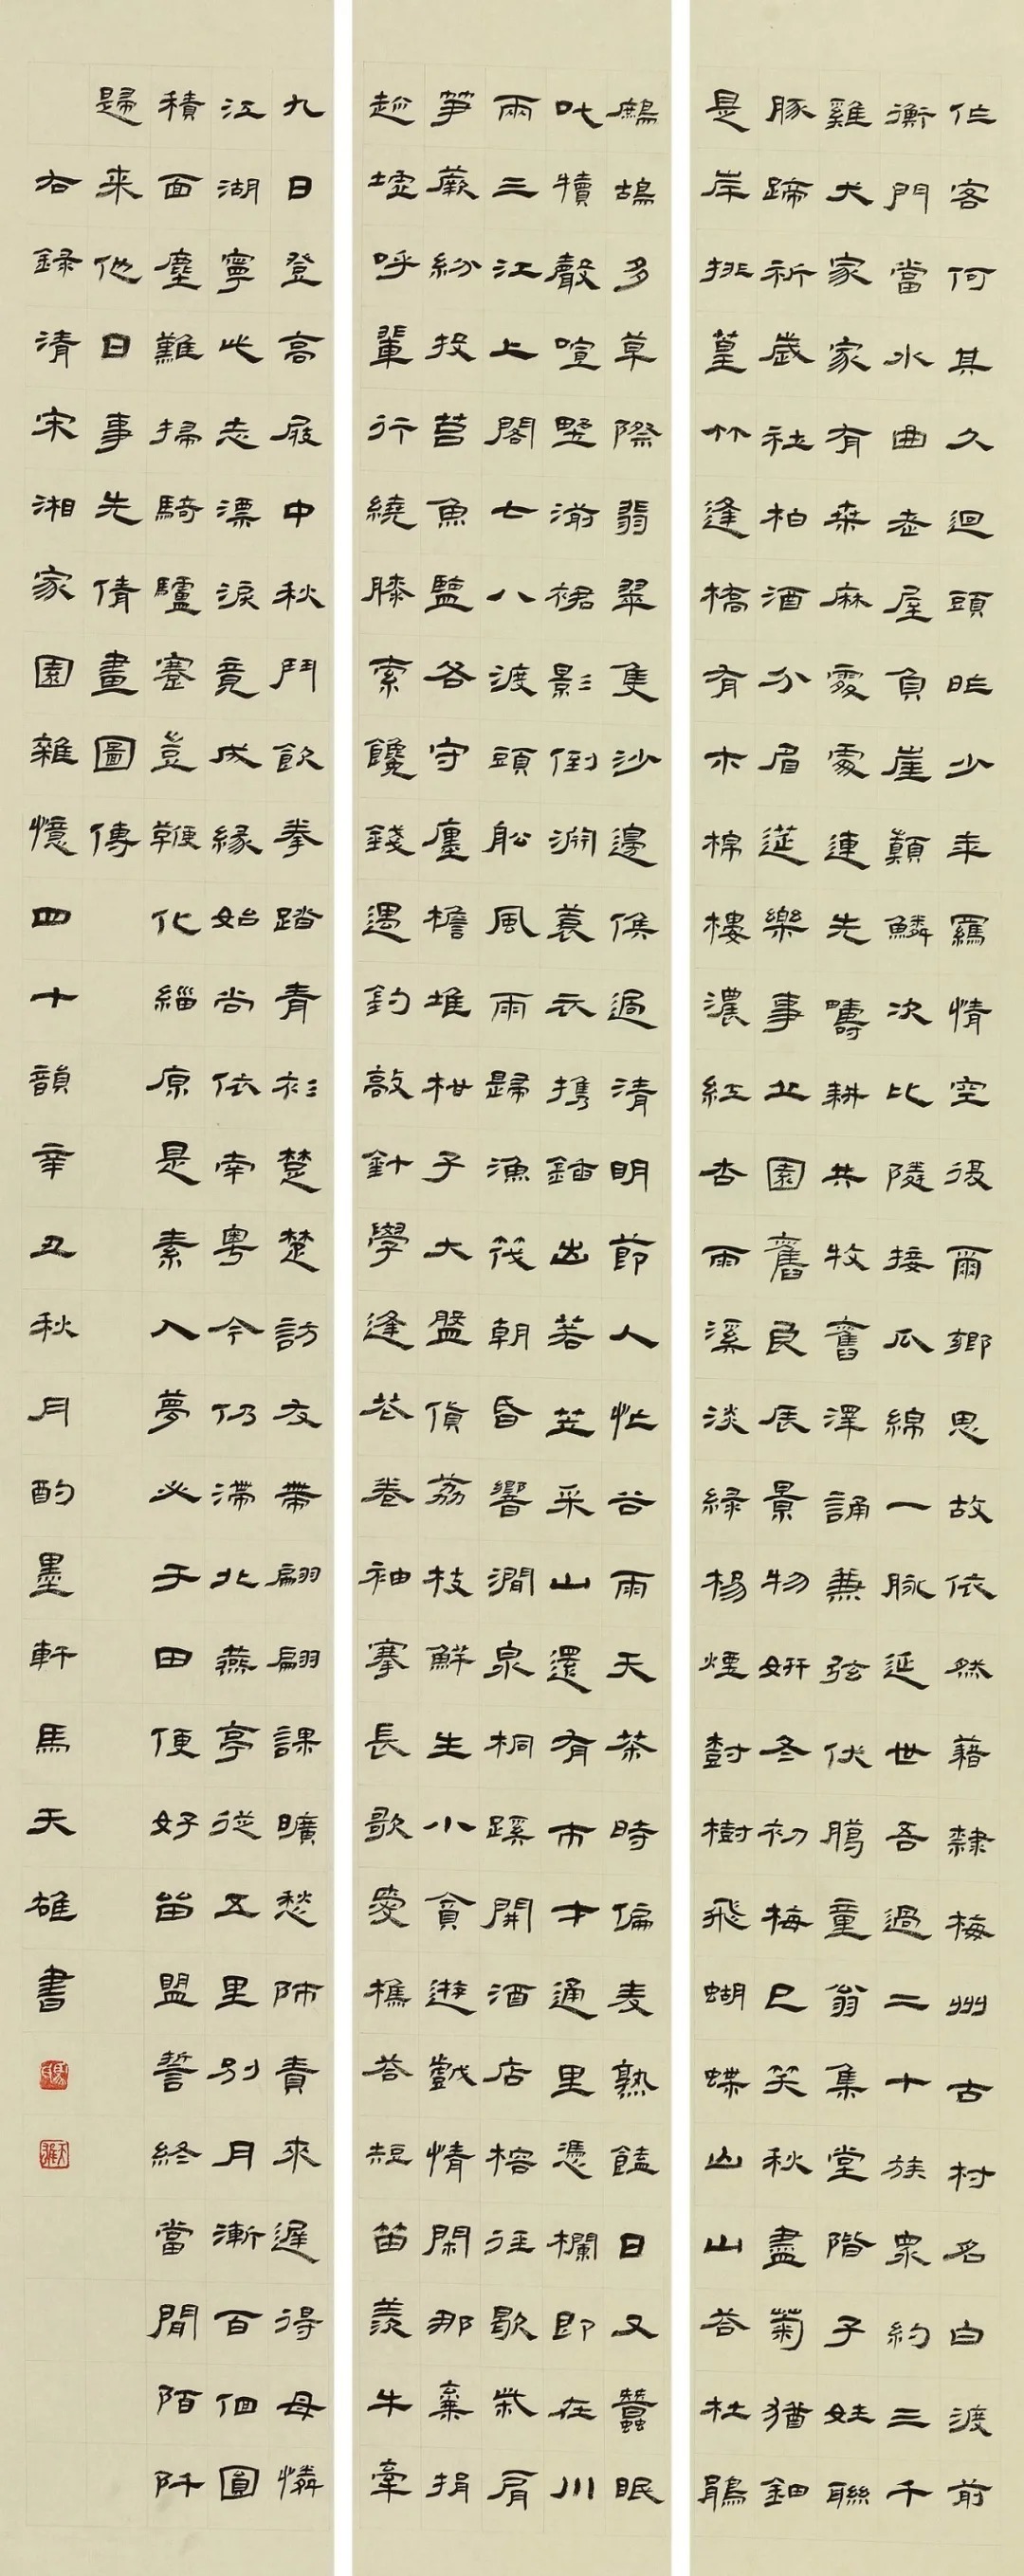 作客何其久迴頭昨少年羈情空復爾鄉思故依然藉隸梅州古村名白渡前
衡門當水曲老屋負崖顛鱗次比隣接瓜綿一脉延世吾過二十族衆約三千
雞犬家家有桑麻處處連先疇耕共牧舊澤誦兼弦伏臈童翁集堂階子姓聯
豚蹄祈歲社柏酒介眉筵樂事北園舊良辰景物妍冬初梅已笑秋盡菊猶鈿
是岸排篁竹逢橋有木棉樓濃紅杏雨溪淡綠楊煙樹樹飛蝴蝶山山答杜鵑
鷓鴣多草際翡翠隻沙邊候過清明節人忙谷雨天茶時偏麦熟饁日又蠶眠
叱犢聲喧野湔裙影倒淵蓑衣携鍤出若笠采山還有市才通里憑欄即在川
兩三江上閣七八渡頭船風雨歸漁筏朝昏響澗泉桐蹊開酒店榕徃歇柴肩
笋蕨紛投莒魚鹽各守廛檐堆柑子大盤貨荔枝鮮生小貪遊戲情閑那棄捐
趁墟呼輩行繞膝索饞錢遇釣敲針學逢花卷袖搴長歌愛樵答短笛羡牛牽
九日登高屐中秋鬥飲拳踏青衫楚楚訪友帶翩翩課曠愁師責來遲得母憐
江湖寧此志漂淚竟成緣始尚依南粵今仍滯北燕亭從五里別月漸百個圓
積面塵難掃騎驢蹇豈鞭化緇原是素入夢必于田便好留盟誓終當聞陌阡
歸来他日事先倩畫圖傳
右錄清宋湘家園雜憶四十韻辛丑秋月酌墨軒馬天雄書